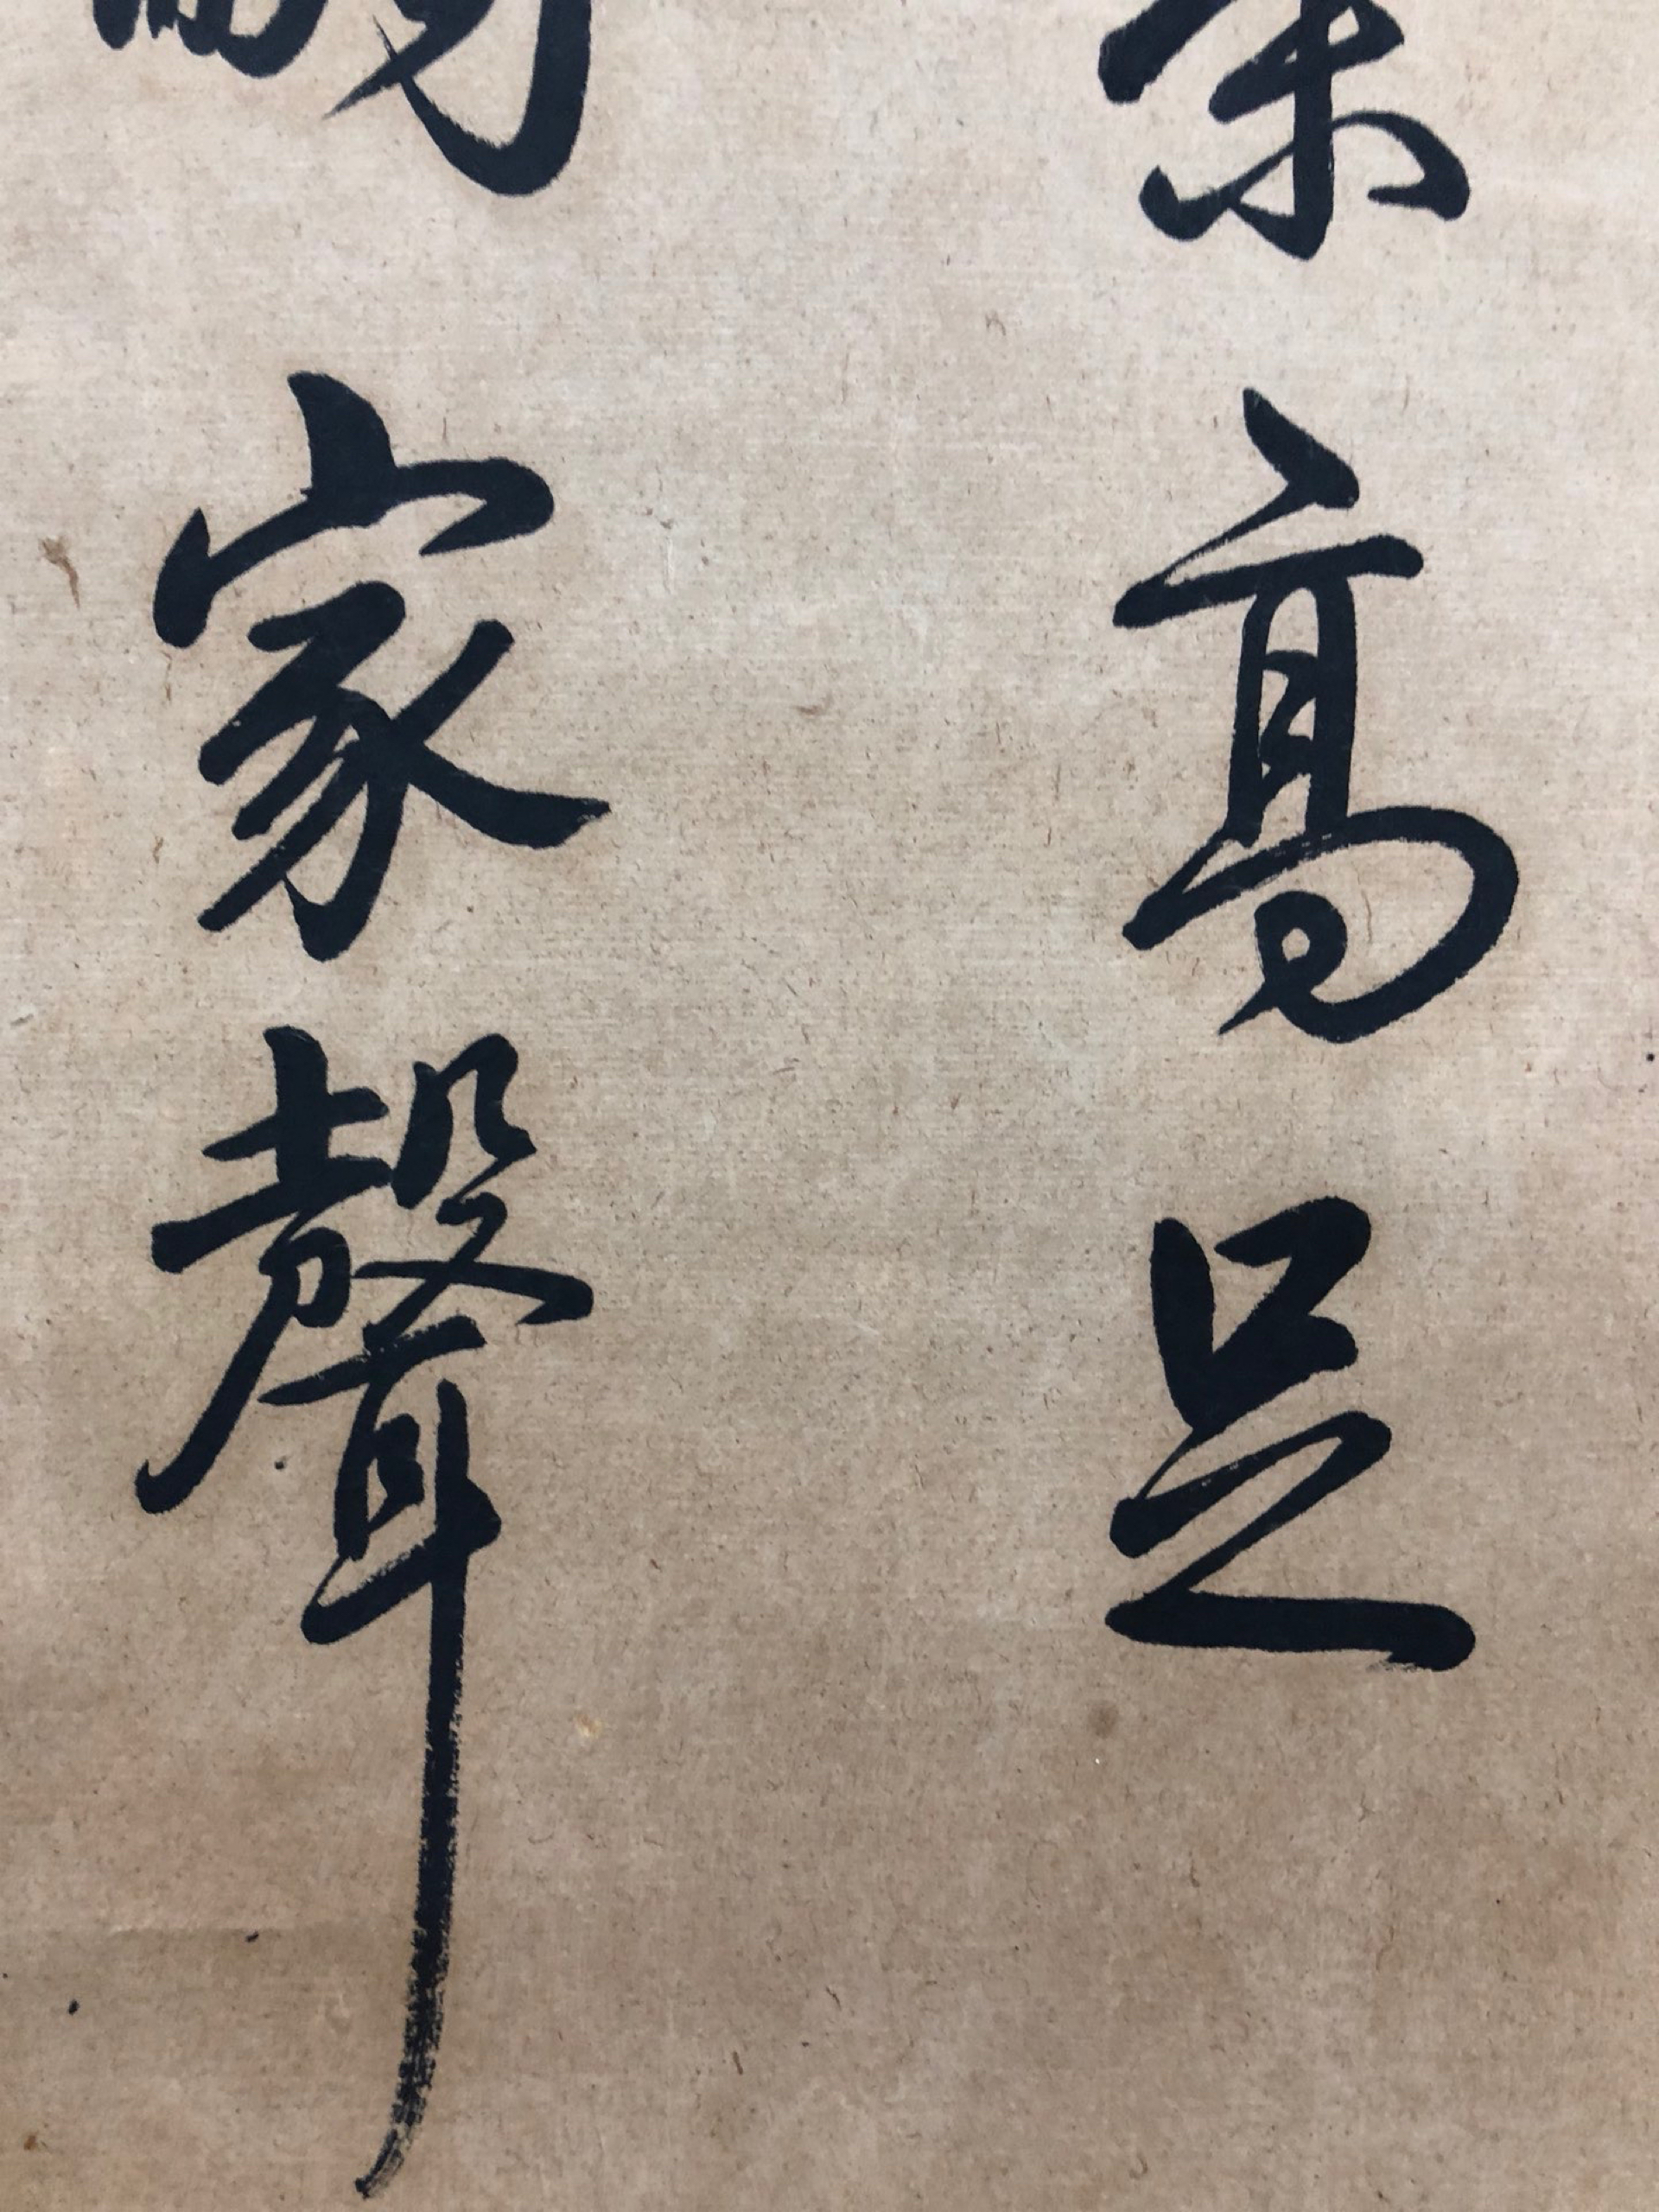 高足
家聲